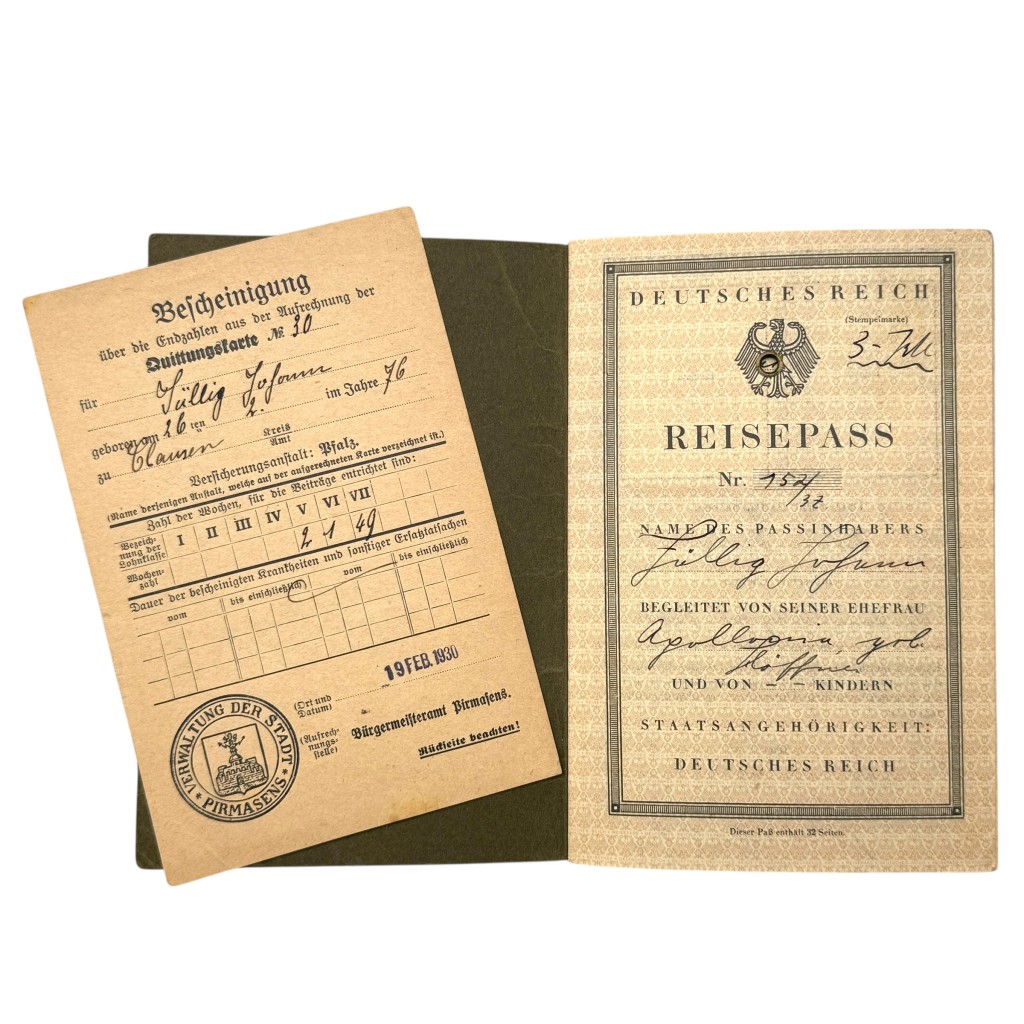 Bescheinigung
über die Endzahlen aus der Aufrechnung der
Quittungskarte № 30
für Füllig Johann
geboren am 26 ten 2. im Jahre 76
zu Clausen Kreis
Amt
Versicherungsanstalt: Pfalz.
(Name derjenigen Anstalt, welche auf der aufgerechneten Karte verzeichnet ist.)
Zahl der Wochen, für die Beiträge entrichtet sind:
Bezeich-
nung der
Lohnklasse
I II III IV V VI VII
Wochen-
zahl
2 1 49
Dauer der bescheinigten Krankheiten und sonstiger Ersatztatsachen
vom bis einschließlich vom bis einschließlich
19 FEB. 1930
(Ort und
Datum)
(Aufrech-
nungs-
stelle)
Bürgermeisteramt Pirmasens.
Rückseite beachten!
VERWALTUNG DER STADT
* PIRMASENS *
DEUTSCHES REICH
(Stempelmarke)
3.-
REISEPASS
Nr. 152/37
NAME DES PASSINHABERS
Füllig Johann
BEGLEITET VON SEINER EHEFRAU
Apollonia, geb.
Höffner
UND VON – – KINDERN
STAATSANGEHÖRIGKEIT:
DEUTSCHES REICH
Dieser Paß enthält 32 Seiten.